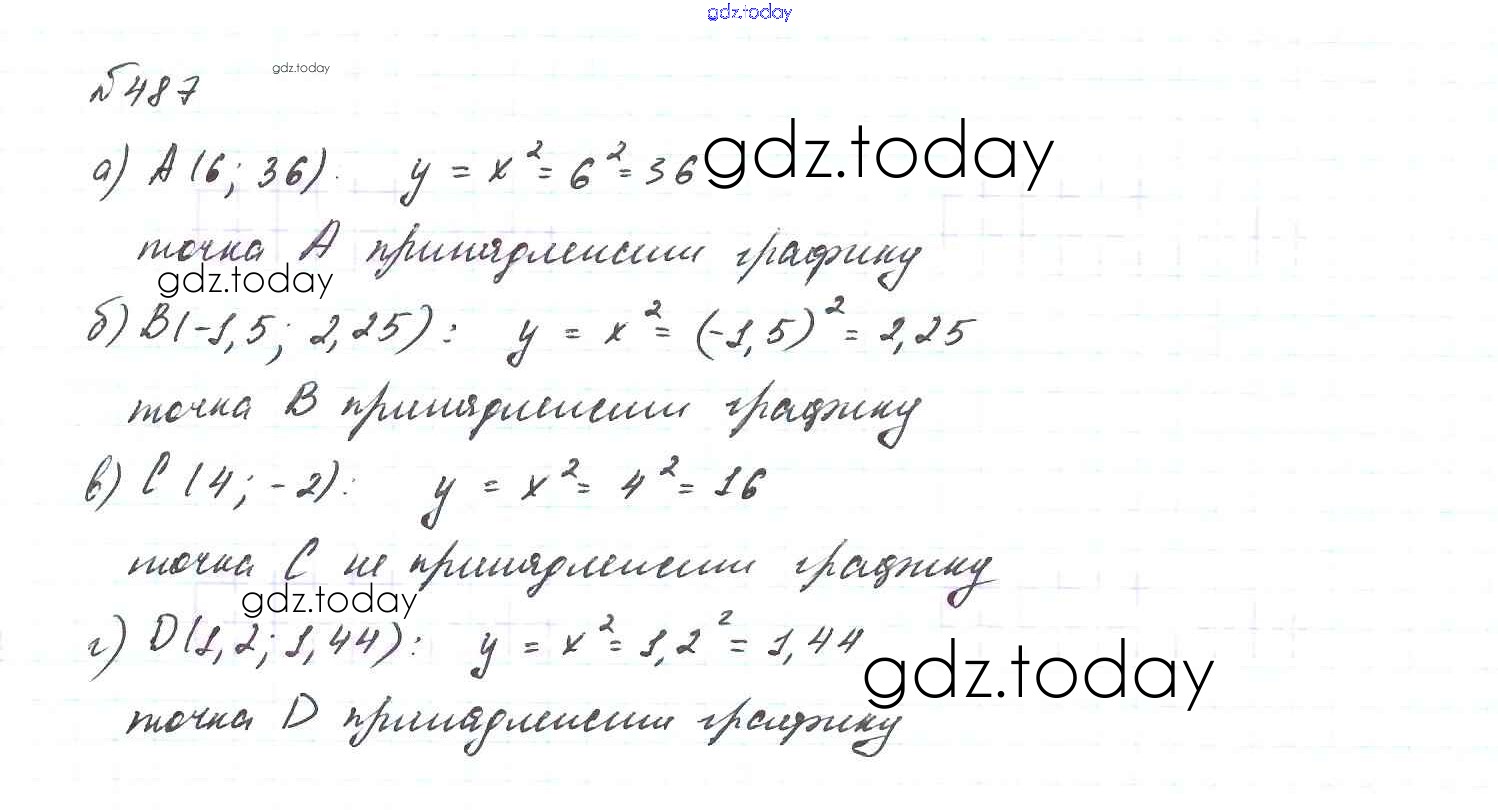 gdz.today
№487 gdz.today
а) A(6; 36). y = x² = 6² = 36 gdz.today
точка A принадлежит графику
gdz.today
б) B(-1,5; 2,25): y = x² = (-1,5)² = 2,25
точка B принадлежит графику
в) C(4; -2): y = x² = 4² = 16
точка C не принадлежит графику
gdz.today
г) D(1,2; 1,44): y = x² = 1,2² = 1,44
gdz.today
точка D принадлежит графику